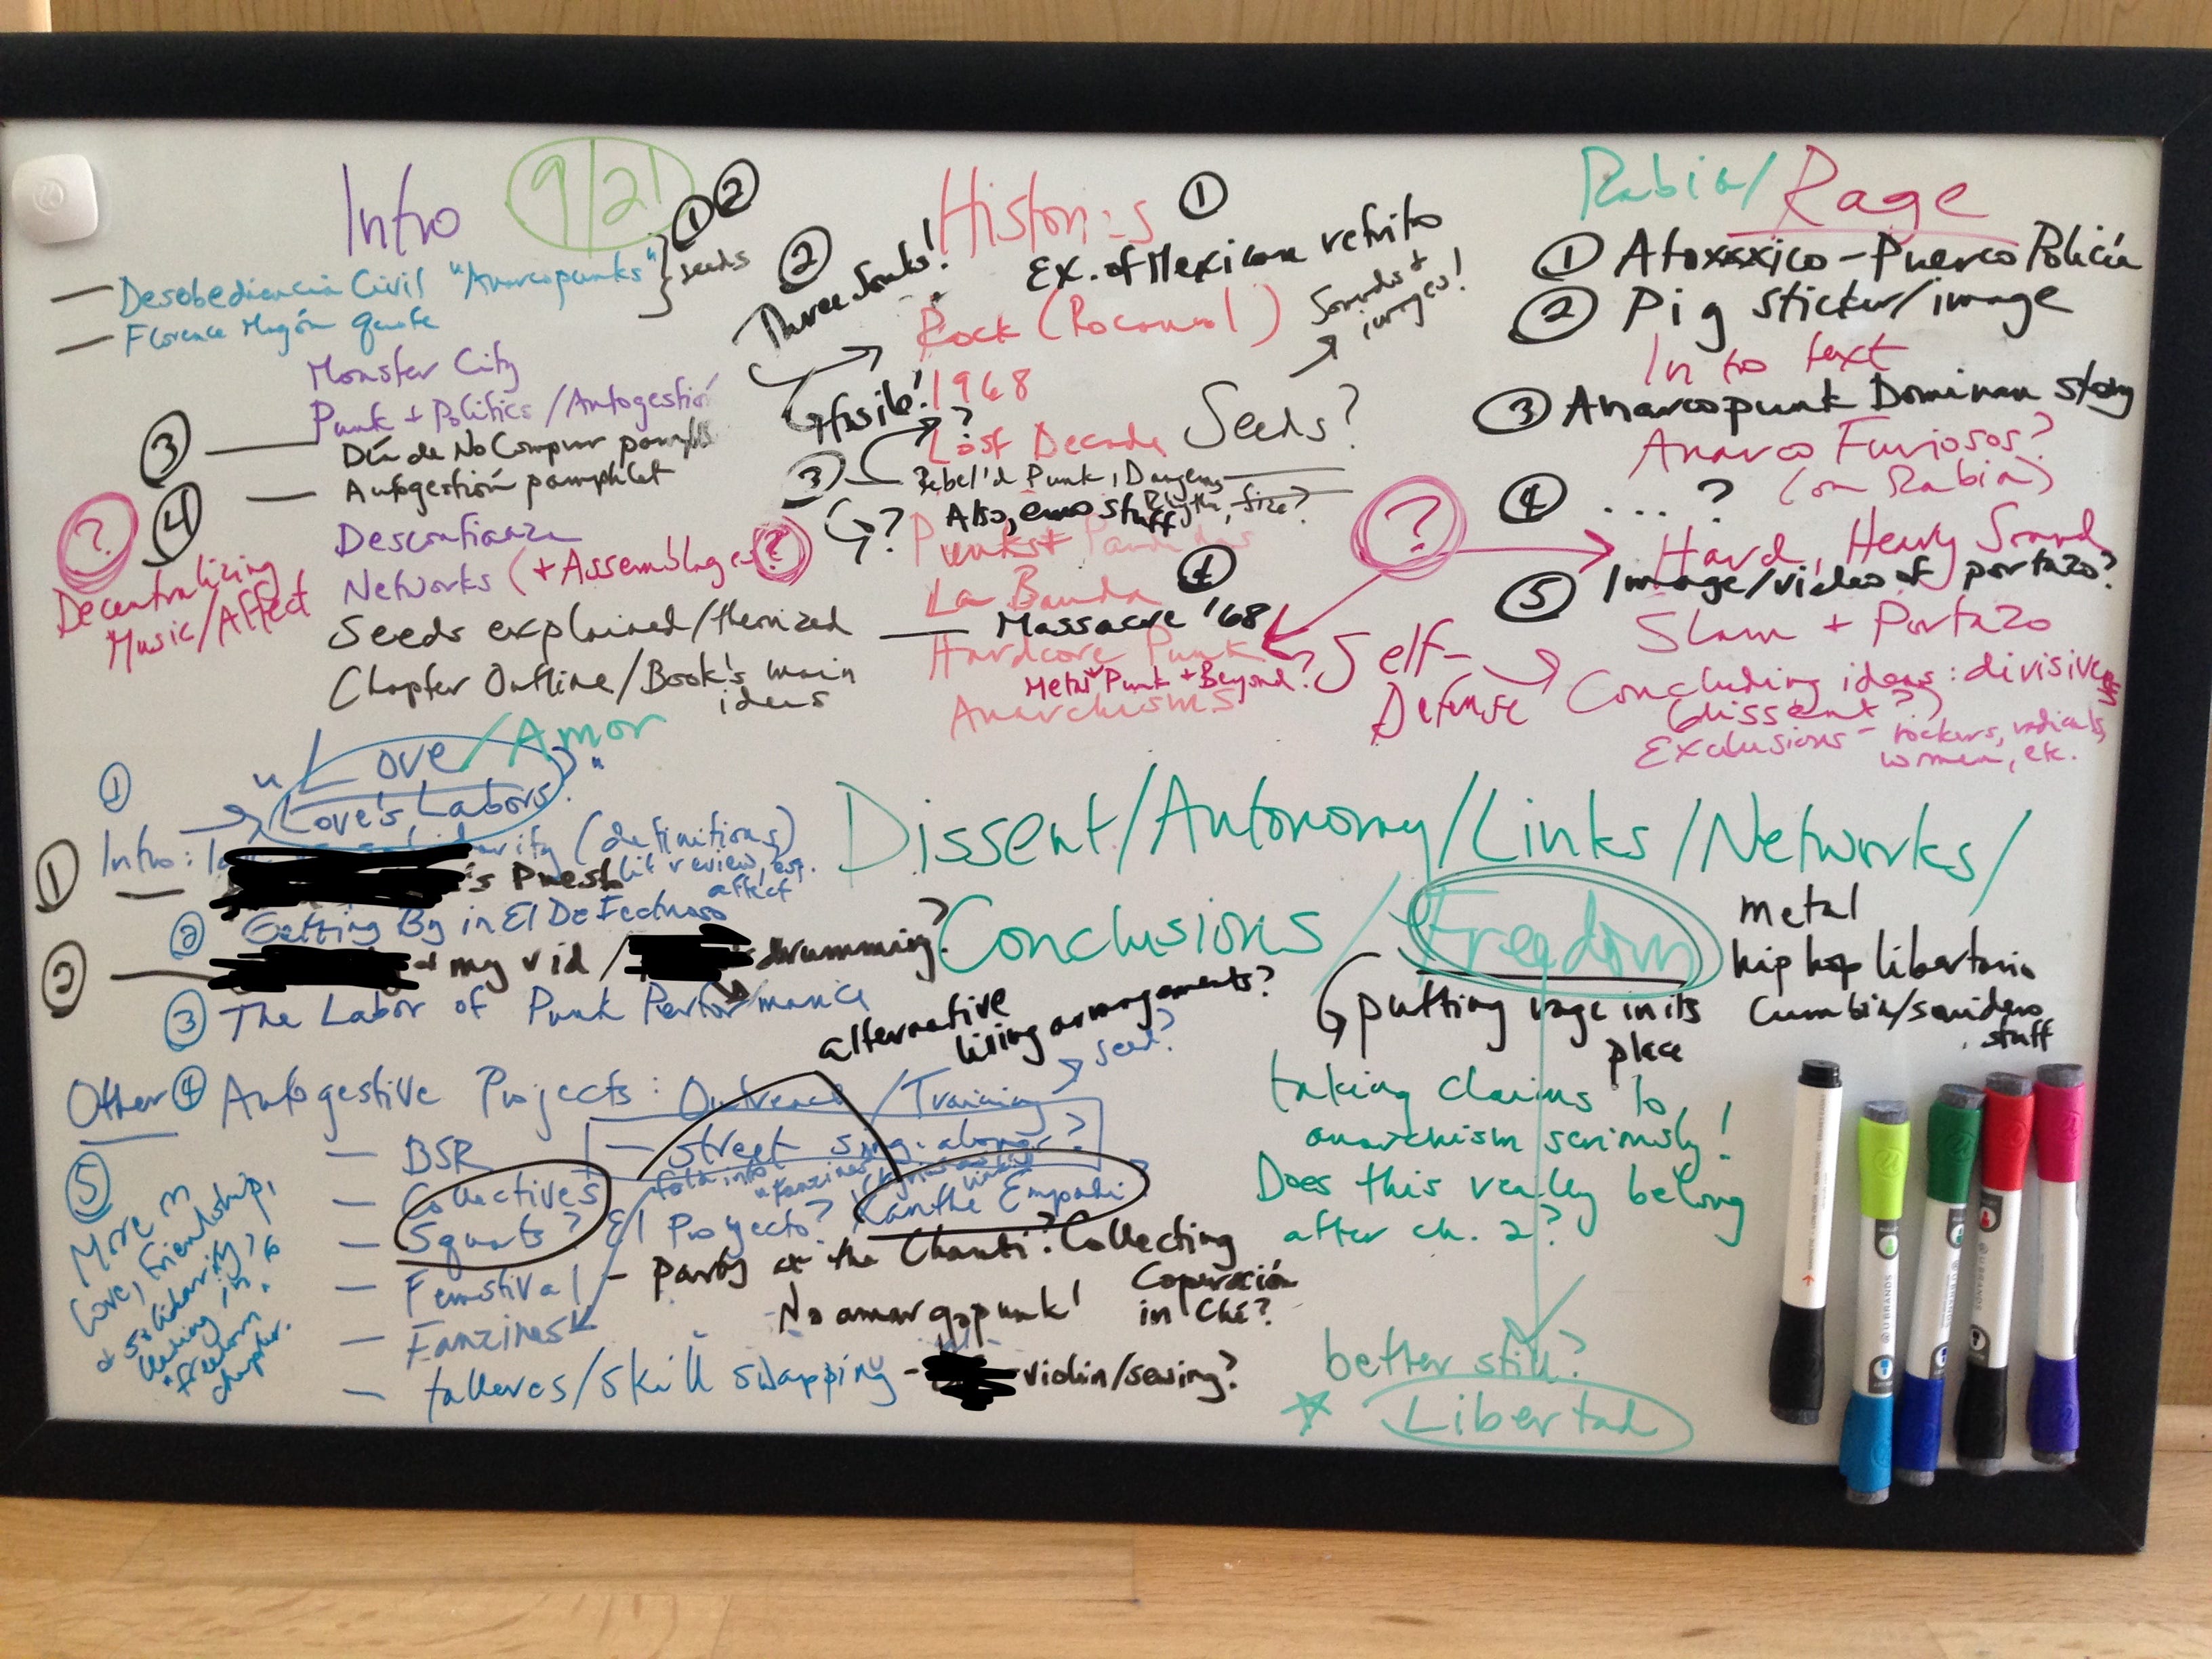 Intro
9/21
① ②
— Desobediencia Civil "Anarcopunks"
seeds
— Florence Magón quote
Monster City
Punk + Politics / Autogestión
③ — Día de No Comprar
④ — Autogestión pamphlet
Desconfianza
Networks (+ Assemblages?)
Seeds explained/
Chapter Outline/Book's main
ideas
?
Decentralizing
Music/Affect
Histories ①
Ex. of Mexican refrito
②
Three Souls!
Rock (Rocanrol)
Sounds +
images!
1968
Seeds?
?
Lost Decade
③ Rebel'd Punk, Dangerous
Also, emo stuff
size?
?
Punks + Pandidas
La Banda
④
— Massacre '68
Hardcore Punk
Metal Punk + Beyond?
Anarchisms
?
Self-
Defense
Rabia/Rage
① Atoxxxico - Puerco Policía
② Pig sticker/image
Intro text
③ Anarcopunk Dominan story
Anarco Furiosos?
(on Rabia)
④ ... ?
Hard, Heavy Sound
⑤ Image/video of portazo?
Slam + Portazo
Concluding ideas: divisiveness
(dissent?)
Exclusions - rockers, radicals,
women, etc.
Love/Amor
"Love's Labors"
①
Intro:
(definitions)
lit review, esp.
affect
①
—
's Puesto
② Getting By in El De Fectuoso
② —
+ my vid /
drumming?
③ The Labor of Punk Performance
alternative
living arrangements?
Other ④ Autogestive Projects: Outreach/Training
seed?
— BSR
— street sing-alongs?
— Collectives
fold into
"fanzines"
— Squats?
El Proyecto?
Xanthe Empodi
— Femstival
- party at the Chanti? Collecting
Coperación
in Che?
No amargopunk!
— Fanzines
— talleres/skill swapping -
violin/sewing?
⑤
More on
love, friendship,
+ solidarity?
leading into
freedom
chapter.
Dissent/Autonomy/Links/Networks/
Conclusions/Freedom
metal
hip hop libertario
Cumbia/sonidero
stuff
putting rage in its
place
taking claims to
anarchism seriously!
Does this really belong
after ch. 2?
better still?
Libertad